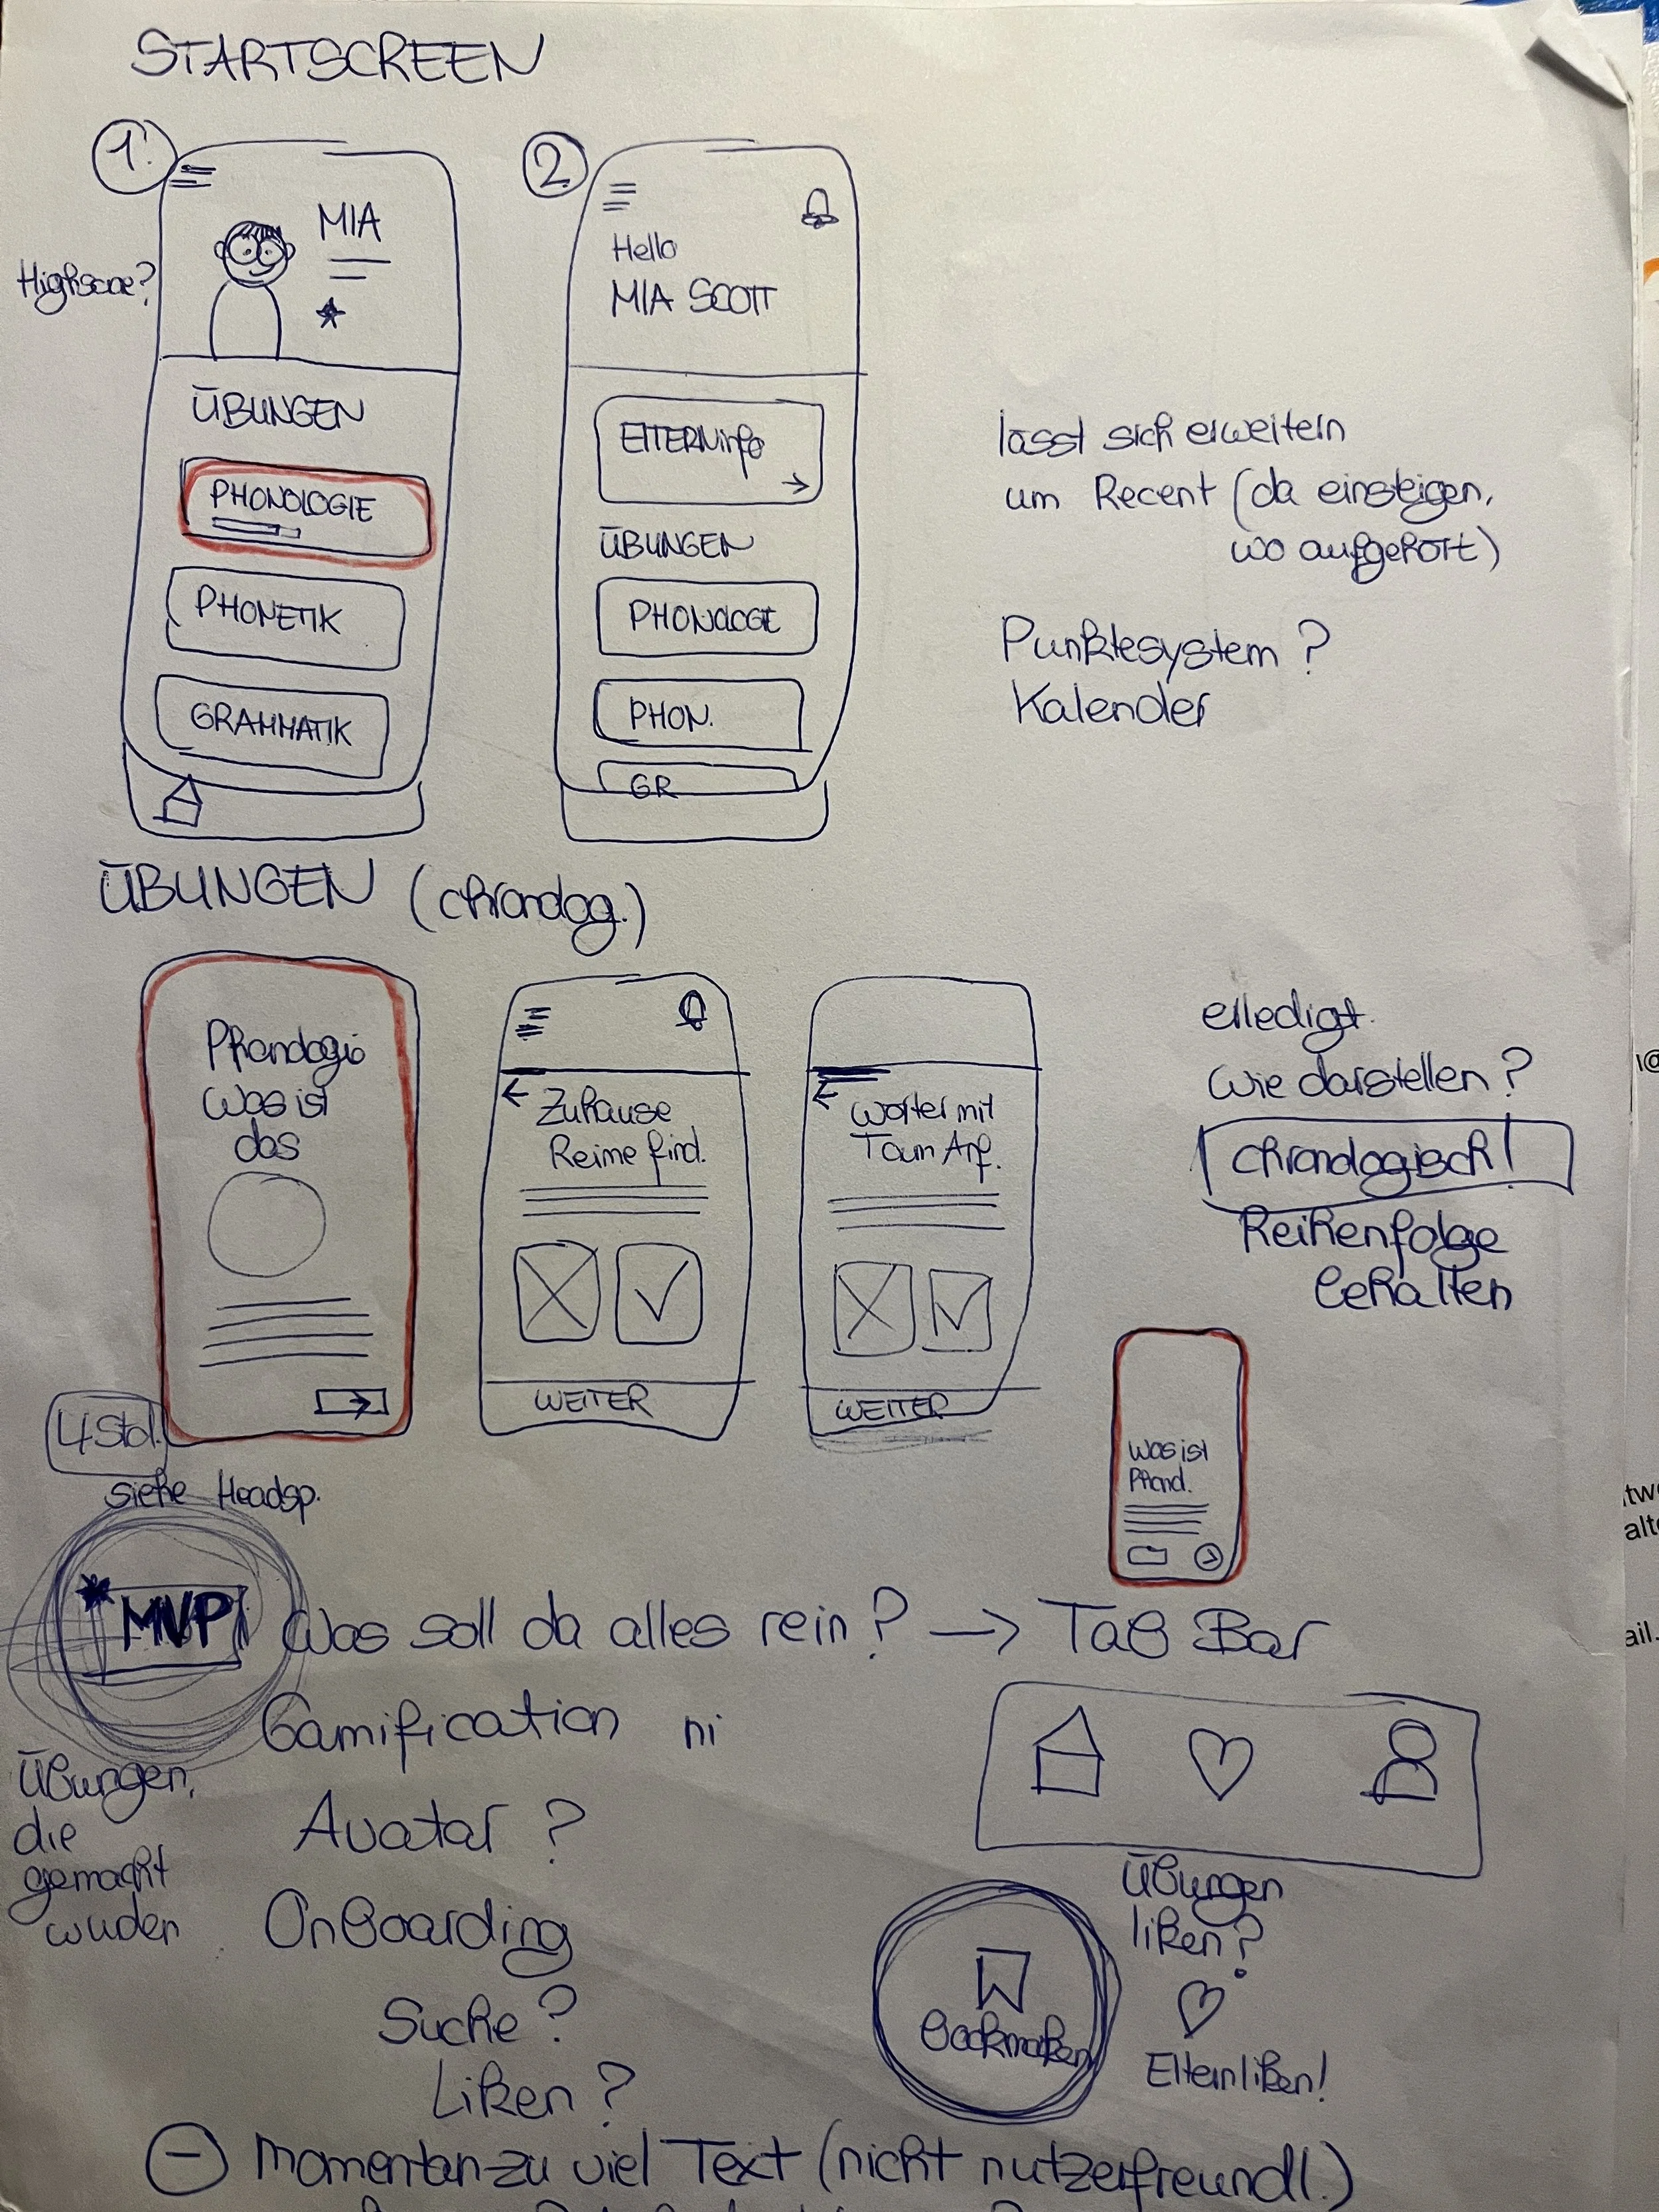 STARTSCREEN
1.
MIA
Highscore?
ÜBUNGEN
PHONOLOGIE
PHONETIK
GRAMMATIK
2
Hello
MIA SCOTT
ELTERNinfo
ÜBUNGEN
PHONOLOGIE
PHON.
GR
lässt sich erweitern
um Recent (da einsteigen,
wo aufgehört)
Punktesystem?
Kalender
ÜBUNGEN (chronolog.)
Phonologie
Was ist
das
Zuhause
Reime find.
WEITER
Wörter mit
Taum Anf.
WEITER
erledigt.
Wie darstellen?
chronologisch!
Reihenfolge
behalten
Was ist
Phonol.
4 Std.
siehe Headsp.
MVP
Was soll da alles rein? → Tab Bar
Gamification ni
Übungen,
die
gemacht
wuden
Avatar?
Onboarding
Suche?
Liken?
Übungen
liken?
Bookmarken
Eltern liken!
- Momentan zu viel Text (nicht nutzerfreundl.)